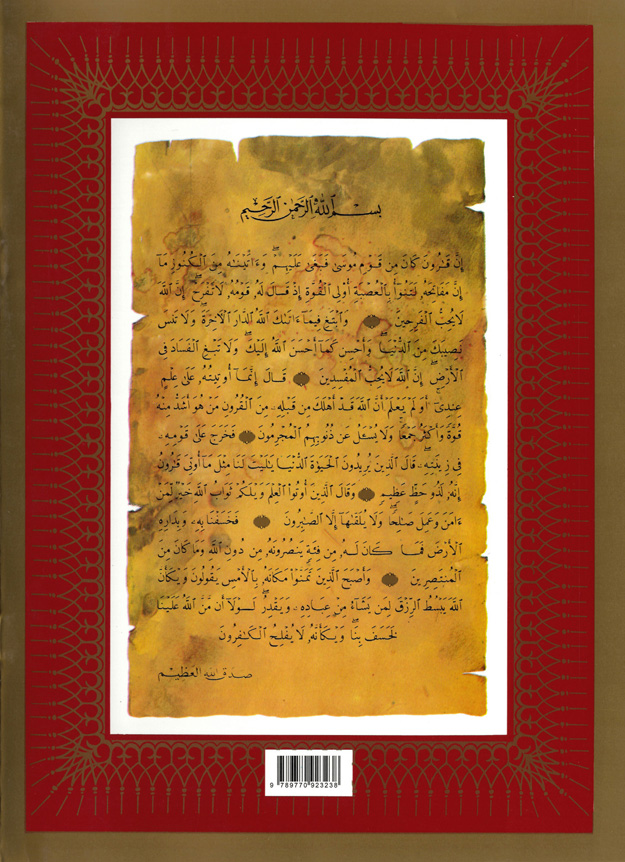 بِسْمِ ٱللَّهِ ٱلرَّحْمَٰنِ ٱلرَّحِيمِ
إِنَّ قَٰرُونَ كَانَ مِن قَوْمِ مُوسَىٰ فَبَغَىٰ عَلَيْهِمْ ۖ وَءَاتَيْنَٰهُ مِنَ ٱلْكُنُوزِ مَآ
إِنَّ مَفَاتِحَهُۥ لَتَنُوٓأُ بِٱلْعُصْبَةِ أُو۟لِى ٱلْقُوَّةِ إِذْ قَالَ لَهُۥ قَوْمُهُۥ لَا تَفْرَحْ ۖ إِنَّ ٱللَّهَ
لَا يُحِبُّ ٱلْفَرِحِينَ وَٱبْتَغِ فِيمَآ ءَاتَىٰكَ ٱللَّهُ ٱلدَّارَ ٱلْءَاخِرَةَ ۖ وَلَا تَنسَ
نَصِيبَكَ مِنَ ٱلدُّنْيَا ۖ وَأَحْسِن كَمَآ أَحْسَنَ ٱللَّهُ إِلَيْكَ ۖ وَلَا تَبْغِ ٱلْفَسَادَ فِى
ٱلْأَرْضِ ۖ إِنَّ ٱللَّهَ لَا يُحِبُّ ٱلْمُفْسِدِينَ قَالَ إِنَّمَآ أُوتِيتُهُۥ عَلَىٰ عِلْمٍ
عِندِىٓ ۚ أَوَلَمْ يَعْلَمْ أَنَّ ٱللَّهَ قَدْ أَهْلَكَ مِن قَبْلِهِۦ مِنَ ٱلْقُرُونِ مَنْ هُوَ أَشَدُّ مِنْهُ
قُوَّةً وَأَكْثَرُ جَمْعًا ۚ وَلَا يُسْـَٔلُ عَن ذُنُوبِهِمُ ٱلْمُجْرِمُونَ فَخَرَجَ عَلَىٰ قَوْمِهِۦ
فِى زِينَتِهِۦ ۖ قَالَ ٱلَّذِينَ يُرِيدُونَ ٱلْحَيَوٰةَ ٱلدُّنْيَا يَٰلَيْتَ لَنَا مِثْلَ مَآ أُوتِىَ قَٰرُونُ
إِنَّهُۥ لَذُو حَظٍّ عَظِيمٍ وَقَالَ ٱلَّذِينَ أُوتُوا۟ ٱلْعِلْمَ وَيْلَكُمْ ثَوَابُ ٱللَّهِ خَيْرٌ لِّمَنْ
ءَامَنَ وَعَمِلَ صَٰلِحًا وَلَا يُلَقَّىٰهَآ إِلَّا ٱلصَّٰبِرُونَ فَخَسَفْنَا بِهِۦ وَبِدَارِهِ
ٱلْأَرْضَ فَمَا كَانَ لَهُۥ مِن فِئَةٍ يَنصُرُونَهُۥ مِن دُونِ ٱللَّهِ وَمَا كَانَ مِنَ
ٱلْمُنتَصِرِينَ وَأَصْبَحَ ٱلَّذِينَ تَمَنَّوْا۟ مَكَانَهُۥ بِٱلْأَمْسِ يَقُولُونَ وَيْكَأَنَّ
ٱللَّهَ يَبْسُطُ ٱلرِّزْقَ لِمَن يَشَآءُ مِنْ عِبَادِهِۦ وَيَقْدِرُ ۖ لَوْلَآ أَن مَّنَّ ٱللَّهُ عَلَيْنَا
لَخَسَفَ بِنَا ۖ وَيْكَأَنَّهُۥ لَا يُفْلِحُ ٱلْكَٰفِرُونَ
صدق الله العظيم
9 789770 923238